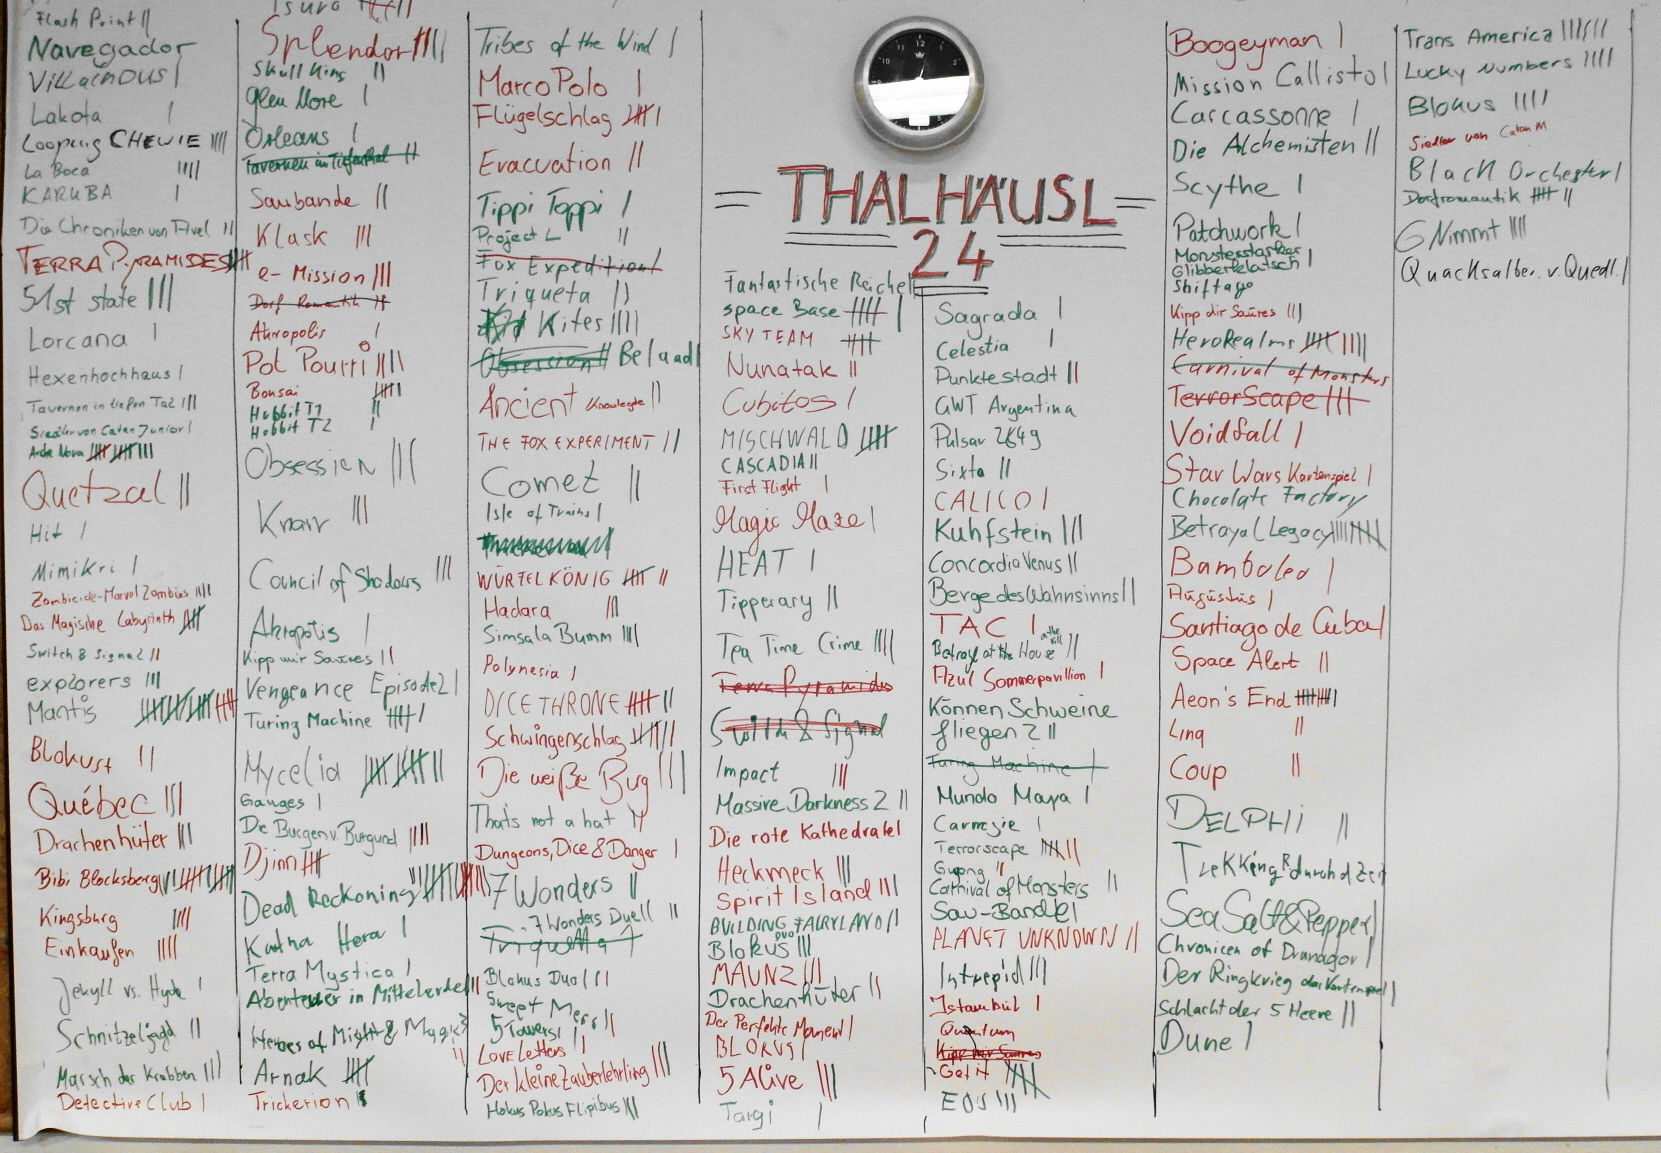 Flash Point ||
Navegador
Villainous |
Lakota |
Looping CHEWIE ||||
La Boca ||||
KARUBA |
Die Chroniken von Avel ||
TERRA PYRAMIDES
51st state |||
Lorcana |
Hexenhochhaus |
Tavernen im tiefen Tal |||
Siedler von Catan Junior |
Arche Nova
Quetzal ||
Hit |
Mimikri |
Zombicide-Marvel Zombies ||||
Das Magische Labyrinth
Switch & Signal ||
explorers |||
Mantis
Blokus+ ||
Québec |||
Drachenhüter |||
Bibi Blocksberg
Kingsburg ||||
Einkaufen ||||
Jekyll vs. Hyde |
Schnitzeljagd ||
Marsch der Krabben |||
Detective Club |
Tsuro
Splendor ||||
Skull King ||
Glen More |
Orleans |
Tavernen im Tiefenthal ||
Saubande ||
Klask |||
e-Mission |||
Dorf Romantik ||
Akropolis |
Pot Pourri ||||
Bonsai
Hobbit T1 ||
Hobbit T2 |
Obsession |||
Knarr |||
Council of Shadows |||
Akropolis |
Kipp mir Saures ||
Vengeance Episode 2 |
Turing Machine
Mycelia
Ganges |
Die Burgen v. Burgund ||||
Djinn
Dead Reckoning
Katna Hera |
Terra Mystica |
Abenteuer in Mittelerde
Heroes of Might & Magic 3
Arnak
Trickerion
Tribes of the Wind |
Marco Polo |
Flügelschlag
Evacuation ||
Tippi Toppi |
Project L ||
Fox Expedition
Triqueta ||
Kites ||||
Obsession || Belaad |
Ancient Knowlegde ||
THE FOX EXPERIMENT ||
Comet ||
Isle of Trains |
WÜRFELKÖNIG
Hadara |||
Simsala Bumm ||||
Polynesia |
DICE THRONE
Schwingenschlag
Die weiße Burg |||
Thats not a hat
Dungeons, Dice & Danger |
7 Wonders ||
7 Wonders Duell ||
Triquetta
Blokus Duo |||
5 Towers |
Love Letters |
Der kleine Zauberlehrling |||
Hokus Pokus Flipibus |||
= THALHÄUSL =
24
Fantastische Reiche
space Base
SKY TEAM
Nunatak ||
Cubitos |
MISCHWALD
CASCADIA ||
First Flight |
Magic Maze |
HEAT |
Tipperary ||
Tea Time Crime ||||
Terra Pyramides
Switch & Signal
Impact |||
Massive Darkness 2 ||
Die rote Kathedrale |
Heckmeck |||
Spirit Island |||
BUILDING FAIRYLAND ||
Blokus DUO |||
MAUNZ |||
Drachenhüter ||
Der Perfekte Moment |
BLOKUS |
5 Alive |||
Targi |
Sagrada |
Celestia |
Punktestadt ||
GWT Argentina
Pulsar 2849
Sixto ||
CALICO |
Kuhfstein |||
Concordia Venus ||
Berge des Wahnsinns ||
TAC |
Betrayal at the House on the Hill ||
Azul Sommerpavillion |
Können Schweine
fliegen 2 ||
Turing Machine |
Mundo Maya |
Carnegie |
Terrorscape
Gugong ||
Carnival of Monsters ||
Sau-Bande |
PLANET UNKNOWN ||
Intrepid |||
Istanbul |
Quantum
Kipp mir Saures
Get it
EOS |||
Boogeyman |
Mission Callisto |
Carcassonne |
Die Alchemisten ||
Scythe |
Patchwork |
Monsterstarker
Glibberklatsch |
Shiftago
Kipp dir Saures |||
HeroRealms
Carnival of Monsters
TerrorScape |||
Voidfall |
Star Wars Kartenspiel |
Chocolate Factory
Betrayal Legacy
Bamboleo |
Augustus |
Santiago de Cuba |
Space Alert ||
Aeon's End
Linq ||
Coup ||
DELPHi ||
Trekking durch d Zeit
Sea Salt & Pepper |
Chronicen of Dranagor |
Der Ringkrieg das Kartenspiel |
Schlacht der 5 Heere ||
Dune |
Trans America ||||||
Lucky Numbers ||||
Blokus ||||
Siedler von Catan
Black Orchester |
Dorfromantik
6 Nimmt ||||
Quacksalber v. Quedl. |